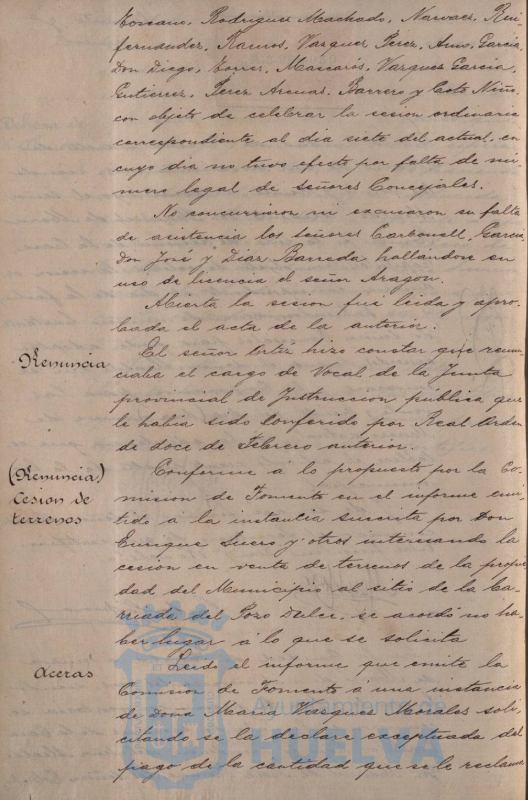 Toscano, Rodriguez Machado, Narvaez, Rui-
fernandez, Ramos, Vazquez Perez, Amo, Garcia,
Don Diego, Torres, Mascarós, Vazquez Garcia,
Gutierrez, Perez Arenas, Barrero y Coto Niño,
con objeto de celebrar la sesion ordinaria
correspondiente al dia siete del actual, en
cuyo dia no tuvo efecto por falta de nú-
mero legal de señores Concejales.
No concurrieron ni excusaron su falta
de asistencia los señores Carbonell, Garcia
Don José y Diaz Barreda hallandose en
uso de licencia el señor Aragon.
Abierta la sesion fué leida y apro-
bada el acta de la anterior.
Renuncia
El señor Ortiz hizo constar que renun-
ciaba el cargo de Vocal de la Junta
provincial de Instruccion pública que
le habia sido conferido por Real Orden
de doce de Febrero anterior.
(Renuncia)
Cesion de
terrenos
Conforme á lo propuesto por la Co-
mision de Fomento en el informe emi-
tido a la instancia suscrita por Don
Enrique Suero y otros interesando la
cesion en venta de terrenos de la propie-
dad del Municipio al sitio de la Ba-
rriada del Pozo Dulce, se acordó no ha-
ber lugar á lo que se solicita
Aceras
Leido el informe que emite la
Comision de Fomento á una instancia
de Doña Maria Vazquez Morales soli-
citando se la declare exceptuada del
pago de la cantidad que se le reclama
Ayuntamiento de
HUELVA